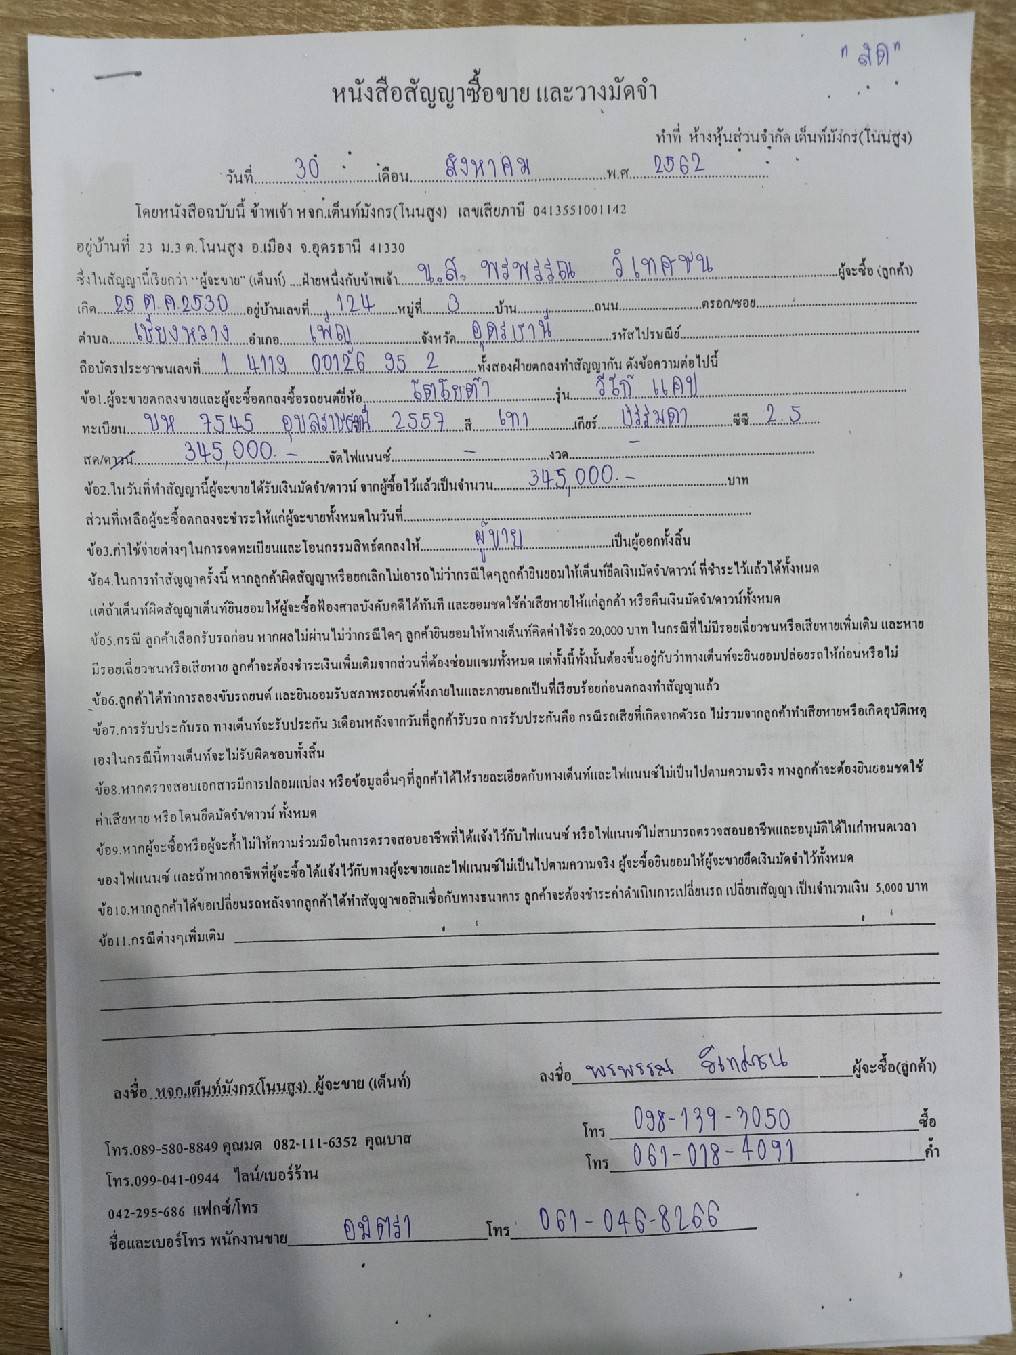 "สด"
หนังสือสัญญาซื้อขาย และวางมัดจำ
ทำที่ ห้างหุ้นส่วนจำกัด เต็นท์มังกร(โนนสูง)
วันที่ 30 เดือน สิงหาคม พ.ศ. 2562
โดยหนังสือฉบับนี้ ข้าพเจ้า หจก.เต็นท์มังกร(โนนสูง) เลขเสียภาษี 0413551001142
อยู่บ้านที่ 23 ม.3 ต.โนนสูง อ.เมือง จ.อุดรธานี 41330
ซึ่งในสัญญานี้เรียกว่า "ผู้จะขาย" (เต็นท์) ฝ่ายหนึ่งกับข้าพเจ้า น.ส. พรพรรณ วิเทศชน ผู้จะซื้อ (ลูกค้า)
เกิด 25 ต.ค.2530 อยู่บ้านเลขที่ 124 หมู่ที่ 3 บ้าน ถนน ตรอก/ซอย
ตำบล เชียงหวาง อำเภอ เพ็ญ จังหวัด อุดรธานี รหัสไปรษณีย์
ถือบัตรประชาชนเลขที่ 1 4119 00126 95 2 ทั้งสองฝ่ายตกลงทำสัญญากัน ดังข้อความต่อไปนี้
ข้อ1.ผู้จะขายตกลงขายและผู้จะซื้อตกลงซื้อรถยนต์ยี่ห้อ โตโยต้า รุ่น วีโก้ แคป
ทะเบียน บห 7545 อุบลราชธานี 2557 สี เทา เกียร์ ธรรมดา ซีซี 2.5
สด/ดาวน์ 345,000.- จัดไฟแนนซ์ - งวด -
ข้อ2.ในวันที่ทำสัญญานี้ผู้จะขายได้รับเงินมัดจำ/ดาวน์ จากผู้ซื้อไว้แล้วเป็นจำนวน 345,000.- บาท
ส่วนที่เหลือผู้จะซื้อตกลงจะชำระให้แก่ผู้จะขายทั้งหมดในวันที่
ข้อ3.ค่าใช้จ่ายต่างๆในการจดทะเบียนและโอนกรรมสิทธิ์ตกลงให้ ผู้ขาย เป็นผู้ออกทั้งสิ้น
ข้อ4.ในการทำสัญญาครั้งนี้ หากลูกค้าผิดสัญญาหรือยกเลิกไม่เอารถไม่ว่ากรณีใดๆลูกค้ายินยอมให้เต็นท์ยึดเงินมัดจำ/ดาวน์ ที่ชำระไว้แล้วได้ทั้งหมด
แต่ถ้าเต็นท์ผิดสัญญาเต็นท์ยินยอมให้ผู้จะซื้อฟ้องศาลบังคับคดีได้ทันที และยอมชดใช้ค่าเสียหายให้แก่ลูกค้า หรือคืนเงินมัดจำ/ดาวน์ทั้งหมด
ข้อ5.กรณี ลูกค้าเลือกรับรถก่อน หากผลไม่ผ่านไม่ว่ากรณีใดๆ ลูกค้ายินยอมให้ทางเต็นท์คิดค่าใช้รถ 20,000 บาท ในกรณีที่ไม่มีรอยเฉี่ยวชนหรือเสียหายเพิ่มเติม และหาย
มีรอยเฉี่ยวชนหรือเสียหาย ลูกค้าจะต้องชำระเงินเพิ่มเติมจากส่วนที่ต้องซ่อมแซมทั้งหมด แต่ทั้งนี้ทั้งนั้นต้องขึ้นอยู่กับว่าทางเต็นท์จะยินยอมปล่อยรถให้ก่อนหรือไม่
ข้อ6.ลูกค้าได้ทำการลองขับรถยนต์ และยินยอมรับสภาพรถยนต์ทั้งภายในและภายนอกเป็นที่เรียบร้อยก่อนตกลงทำสัญญาแล้ว
ข้อ7.การรับประกันรถ ทางเต็นท์จะรับประกัน 3เดือนหลังจากวันที่ลูกค้ารับรถ การรับประกันคือ กรณีรถเสียที่เกิดจากตัวรถ ไม่รวมจากลูกค้าทำเสียหายหรือเกิดอุบัติเหตุ
เองในกรณีนี้ทางเต็นท์จะไม่รับผิดชอบทั้งสิ้น
ข้อ8.หากตรวจสอบเอกสารมีการปลอมแปลง หรือข้อมูลอื่นๆที่ลูกค้าได้ให้รายละเอียดกับทางเต็นท์และไฟแนนซ์ไม่เป็นไปตามความจริง ทางลูกค้าจะต้องยินยอมชดใช้
ค่าเสียหาย หรือโดนยึดมัดจำ/ดาวน์ ทั้งหมด
ข้อ9.หากผู้จะซื้อหรือผู้จะค้ำไม่ให้ความร่วมมือในการตรวจสอบอาชีพที่ได้แจ้งไว้กับไฟแนนซ์ หรือไฟแนนซ์ไม่สามารถตรวจสอบอาชีพและอนุมัติได้ในกำหนดเวลา
ของไฟแนนซ์ และถ้าหากอาชีพที่ผู้จะซื้อได้แจ้งไว้กับทางผู้จะขายและไฟแนนซ์ไม่เป็นไปตามความจริง ผู้จะซื้อยินยอมให้ผู้จะขายยึดเงินมัดจำไว้ทั้งหมด
ข้อ10.หากลูกค้าได้ขอเปลี่ยนรถหลังจากลูกค้าได้ทำสัญญาขอสินเชื่อกับทางธนาคาร ลูกค้าจะต้องชำระค่าดำเนินการเปลี่ยนรถ เปลี่ยนสัญญา เป็นจำนวนเงิน 5,000 บาท
ข้อ11.กรณีต่างๆเพิ่มเติม
ลงชื่อ หจก.เต็นท์มังกร(โนนสูง) ผู้จะขาย (เต็นท์)
ลงชื่อ พรพรรณ วิเทศชน ผู้จะซื้อ(ลูกค้า)
โทร 098-139-3050 ซื้อ
โทร.089-580-8849 คุณมด 082-111-6352 คุณบาส
โทร 061-018-4091 ค้ำ
โทร.099-041-0944 ไลน์/เบอร์ร้าน
042-295-686 แฟกซ์/โทร
ชื่อและเบอร์โทร พนักงานขาย อมิตรา โทร 061-046-8266